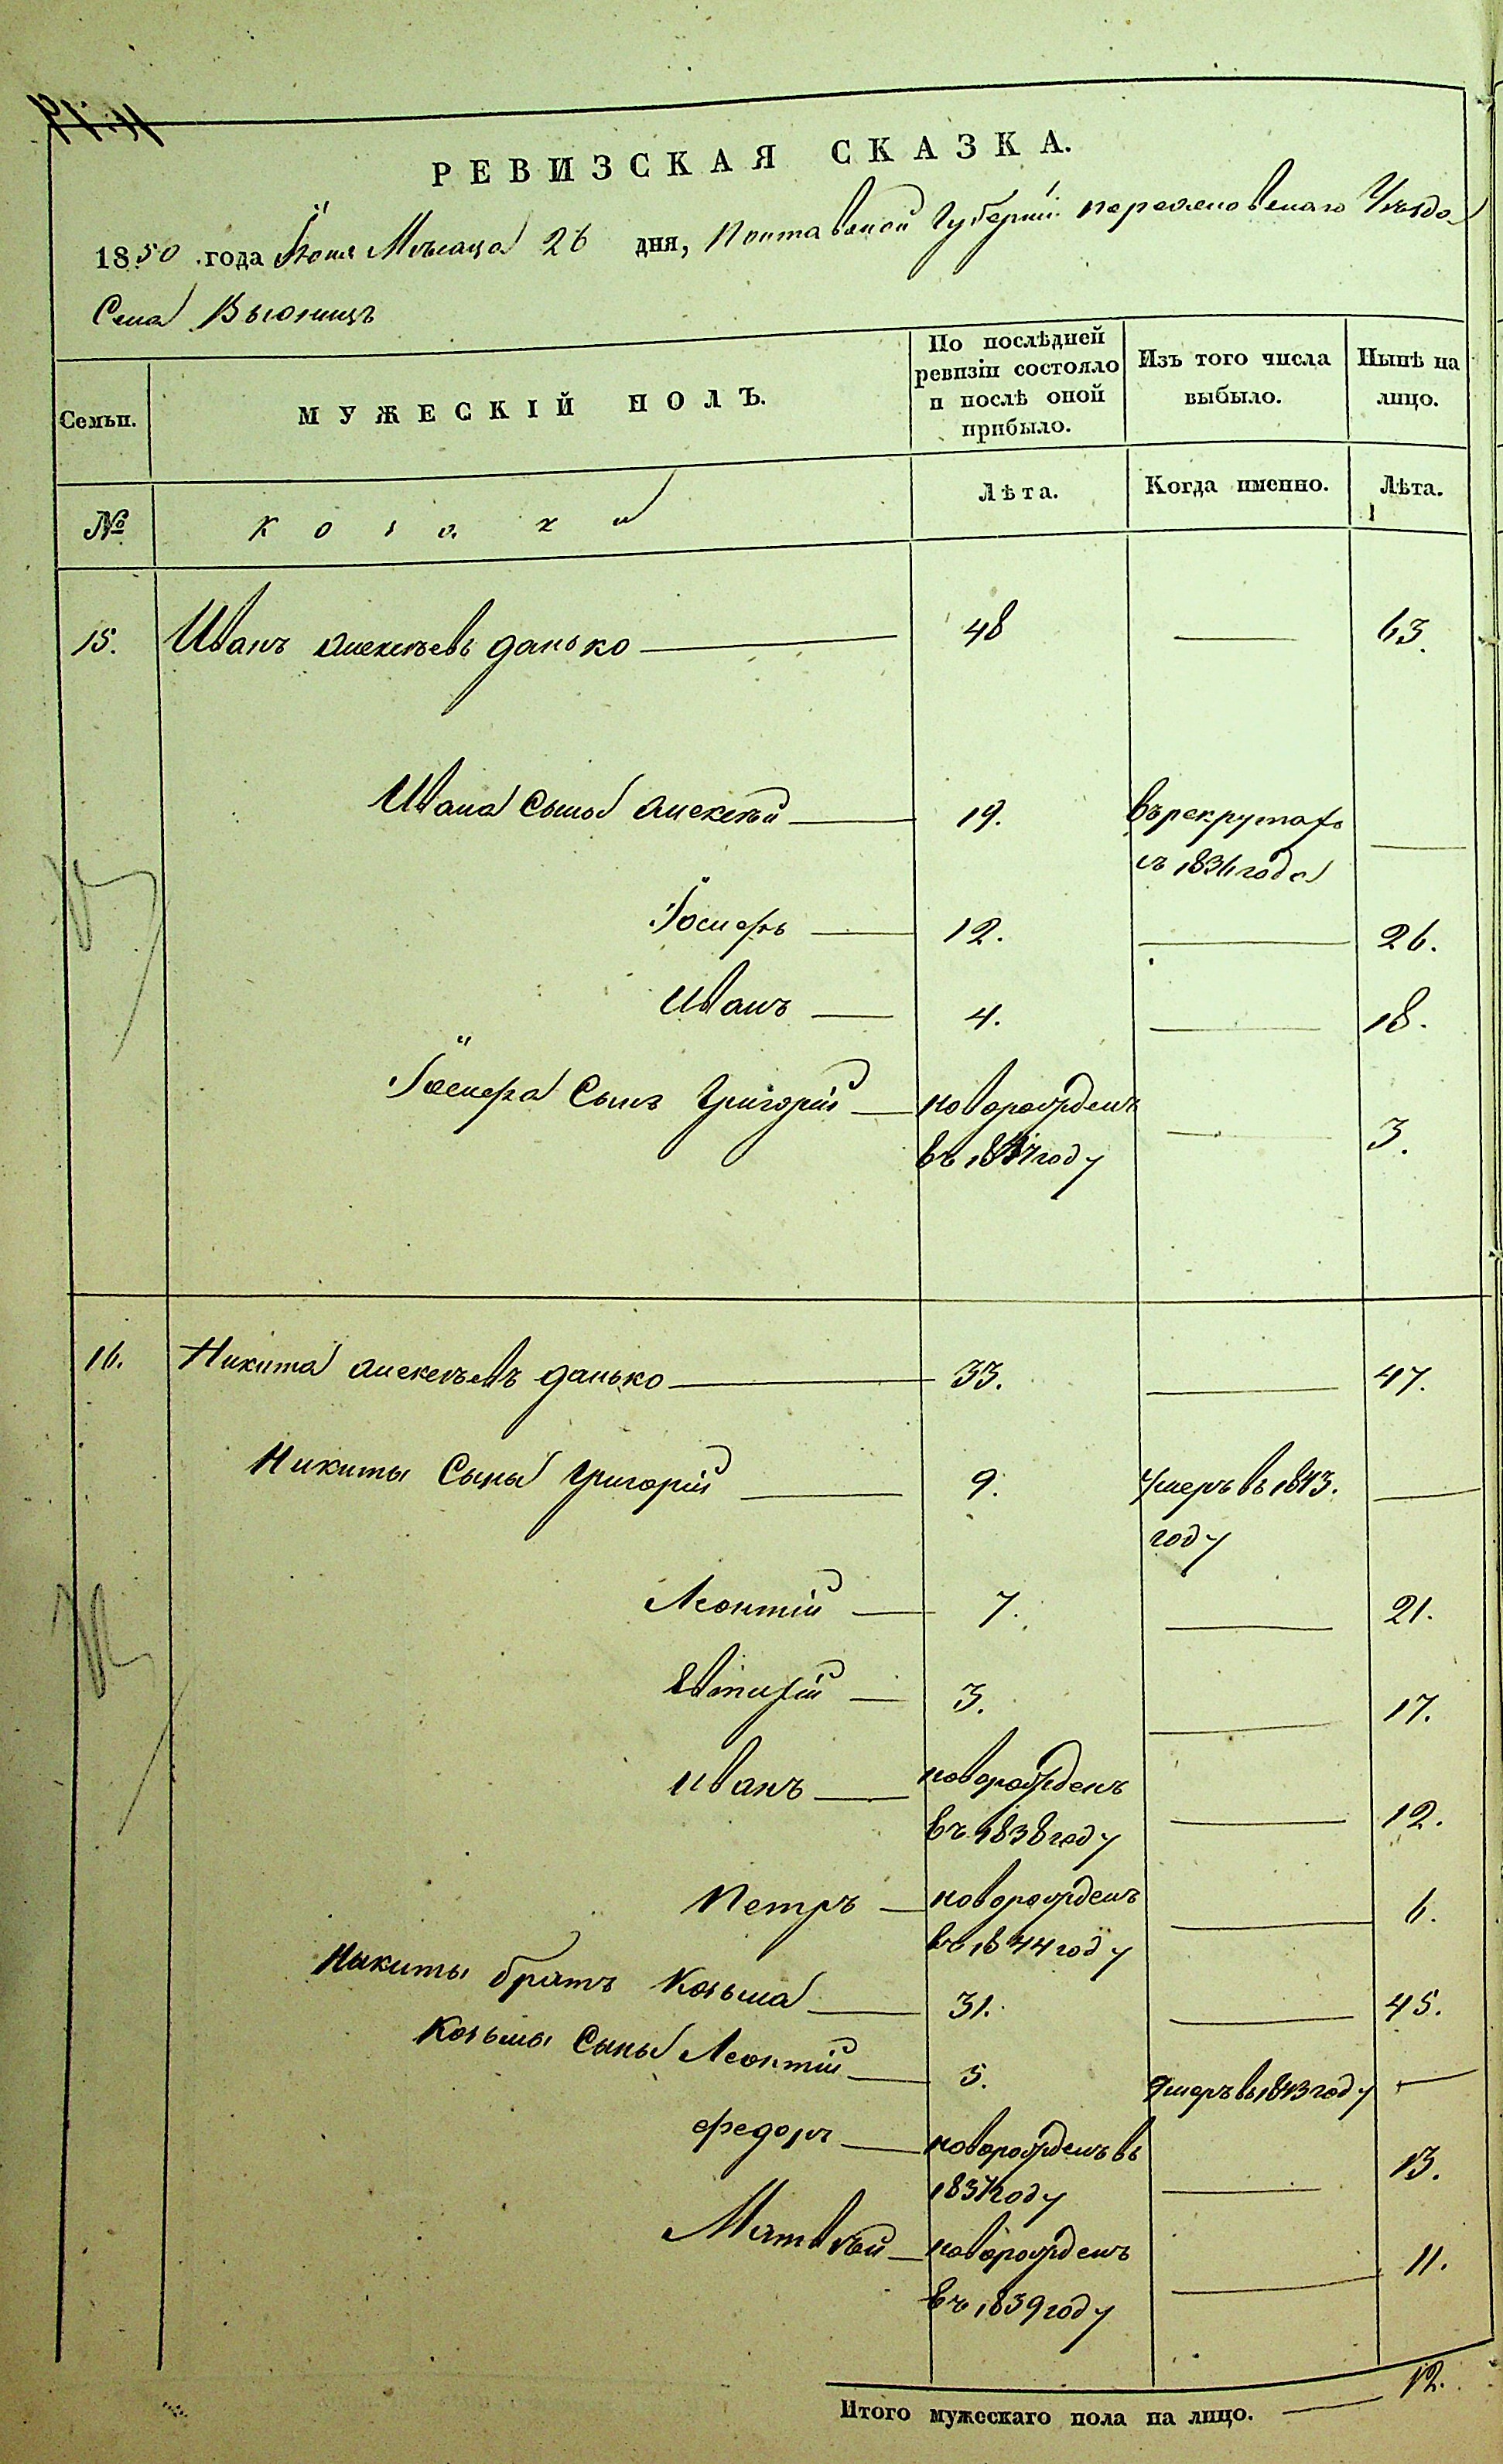 РЕВИЗСКАЯ СКАЗКА.
1850 года Іюня Мѣсяца 26 дня, Полтавской Губерніи Переяславскаго Уѣзда
Села Вьюнищъ
Семьи. МУЖЕСКІЙ ПОЛЪ. По послѣдней ревизіи состояло и послѣ оной прибыло. Изъ того числа выбыло. Нынѣ на лицо.
№ Козаки Лѣта. Когда именно. Лѣта.
15. Иванъ Алексѣевъ Данько 48 63.
Ивана Сыны Алексѣй 19. въ рекрутахъ
съ 1836 года
Іосифъ 12. 26.
Иванъ 4. 18.
Іосифа Сынъ Григорій новорожденъ 3.
въ 1847 году
16. Никита Алексѣевъ Данько 33. 47.
Никиты Сыны Григорій 9. Умеръ въ 1843.
году
Леонтій 7. 21.
Евтихій 3. 17.
Иванъ новорожденъ
въ 1838 году 12.
Петръ новорожденъ 6.
въ 1844 году
Никиты братъ Козьма 31. 45.
Козьмы Сыны Леонтій 5. Умеръ въ 1843 году
Федоръ новорожденъ въ 13.
1837 году
Матвѣй новорожденъ 11.
въ 1839 году
Итого мужескаго пола на лицо. 12.